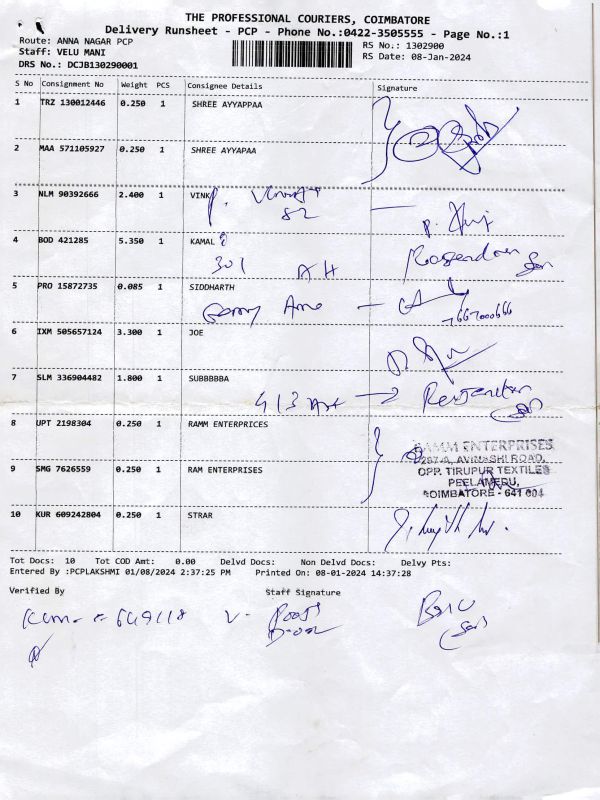 THE PROFESSIONAL COURIERS, COIMBATORE
Delivery Runsheet - PCP - Phone No.:0422-3505555 - Page No.:1
Route: ANNA NAGAR PCP
Staff: VELU MANI
DRS No.: DCJB130290001
RS No.: 1302900
RS Date: 08-Jan-2024
S No Consignment No Weight PCS Consignee Details Signature
1 TRZ 130012446 0.250 1 SHREE AYYAPPAA
2 MAA 571105927 0.250 1 SHREE AYYAPAA
3 NLM 90392666 2.400 1 VINK
82
4 BOD 421285 5.350 1 KAMAL
301 AH
5 PRO 15872735 0.085 1 SIDDHARTH
7667000666
6 IXM 505657124 3.300 1 JOE
7 SLM 336904482 1.800 1 SUBBBBBA
413
8 UPT 2198304 0.250 1 RAMM ENTERPRICES
9 SMG 7626559 0.250 1 RAM ENTERPRISES
RAMM ENTERPRISES
287-A, AVINASHI ROAD,
OPP. TIRUPUR TEXTILES
PEELAMEDU,
COIMBATORE - 641 004
10 KUR 609242804 0.250 1 STRAR
Tot Docs: 10 Tot COD Amt: 0.00 Delvd Docs: Non Delvd Docs: Delvy Pts:
Entered By :PCPLAKSHMI 01/08/2024 2:37:25 PM Printed On: 08-01-2024 14:37:28
Verified By Staff Signature